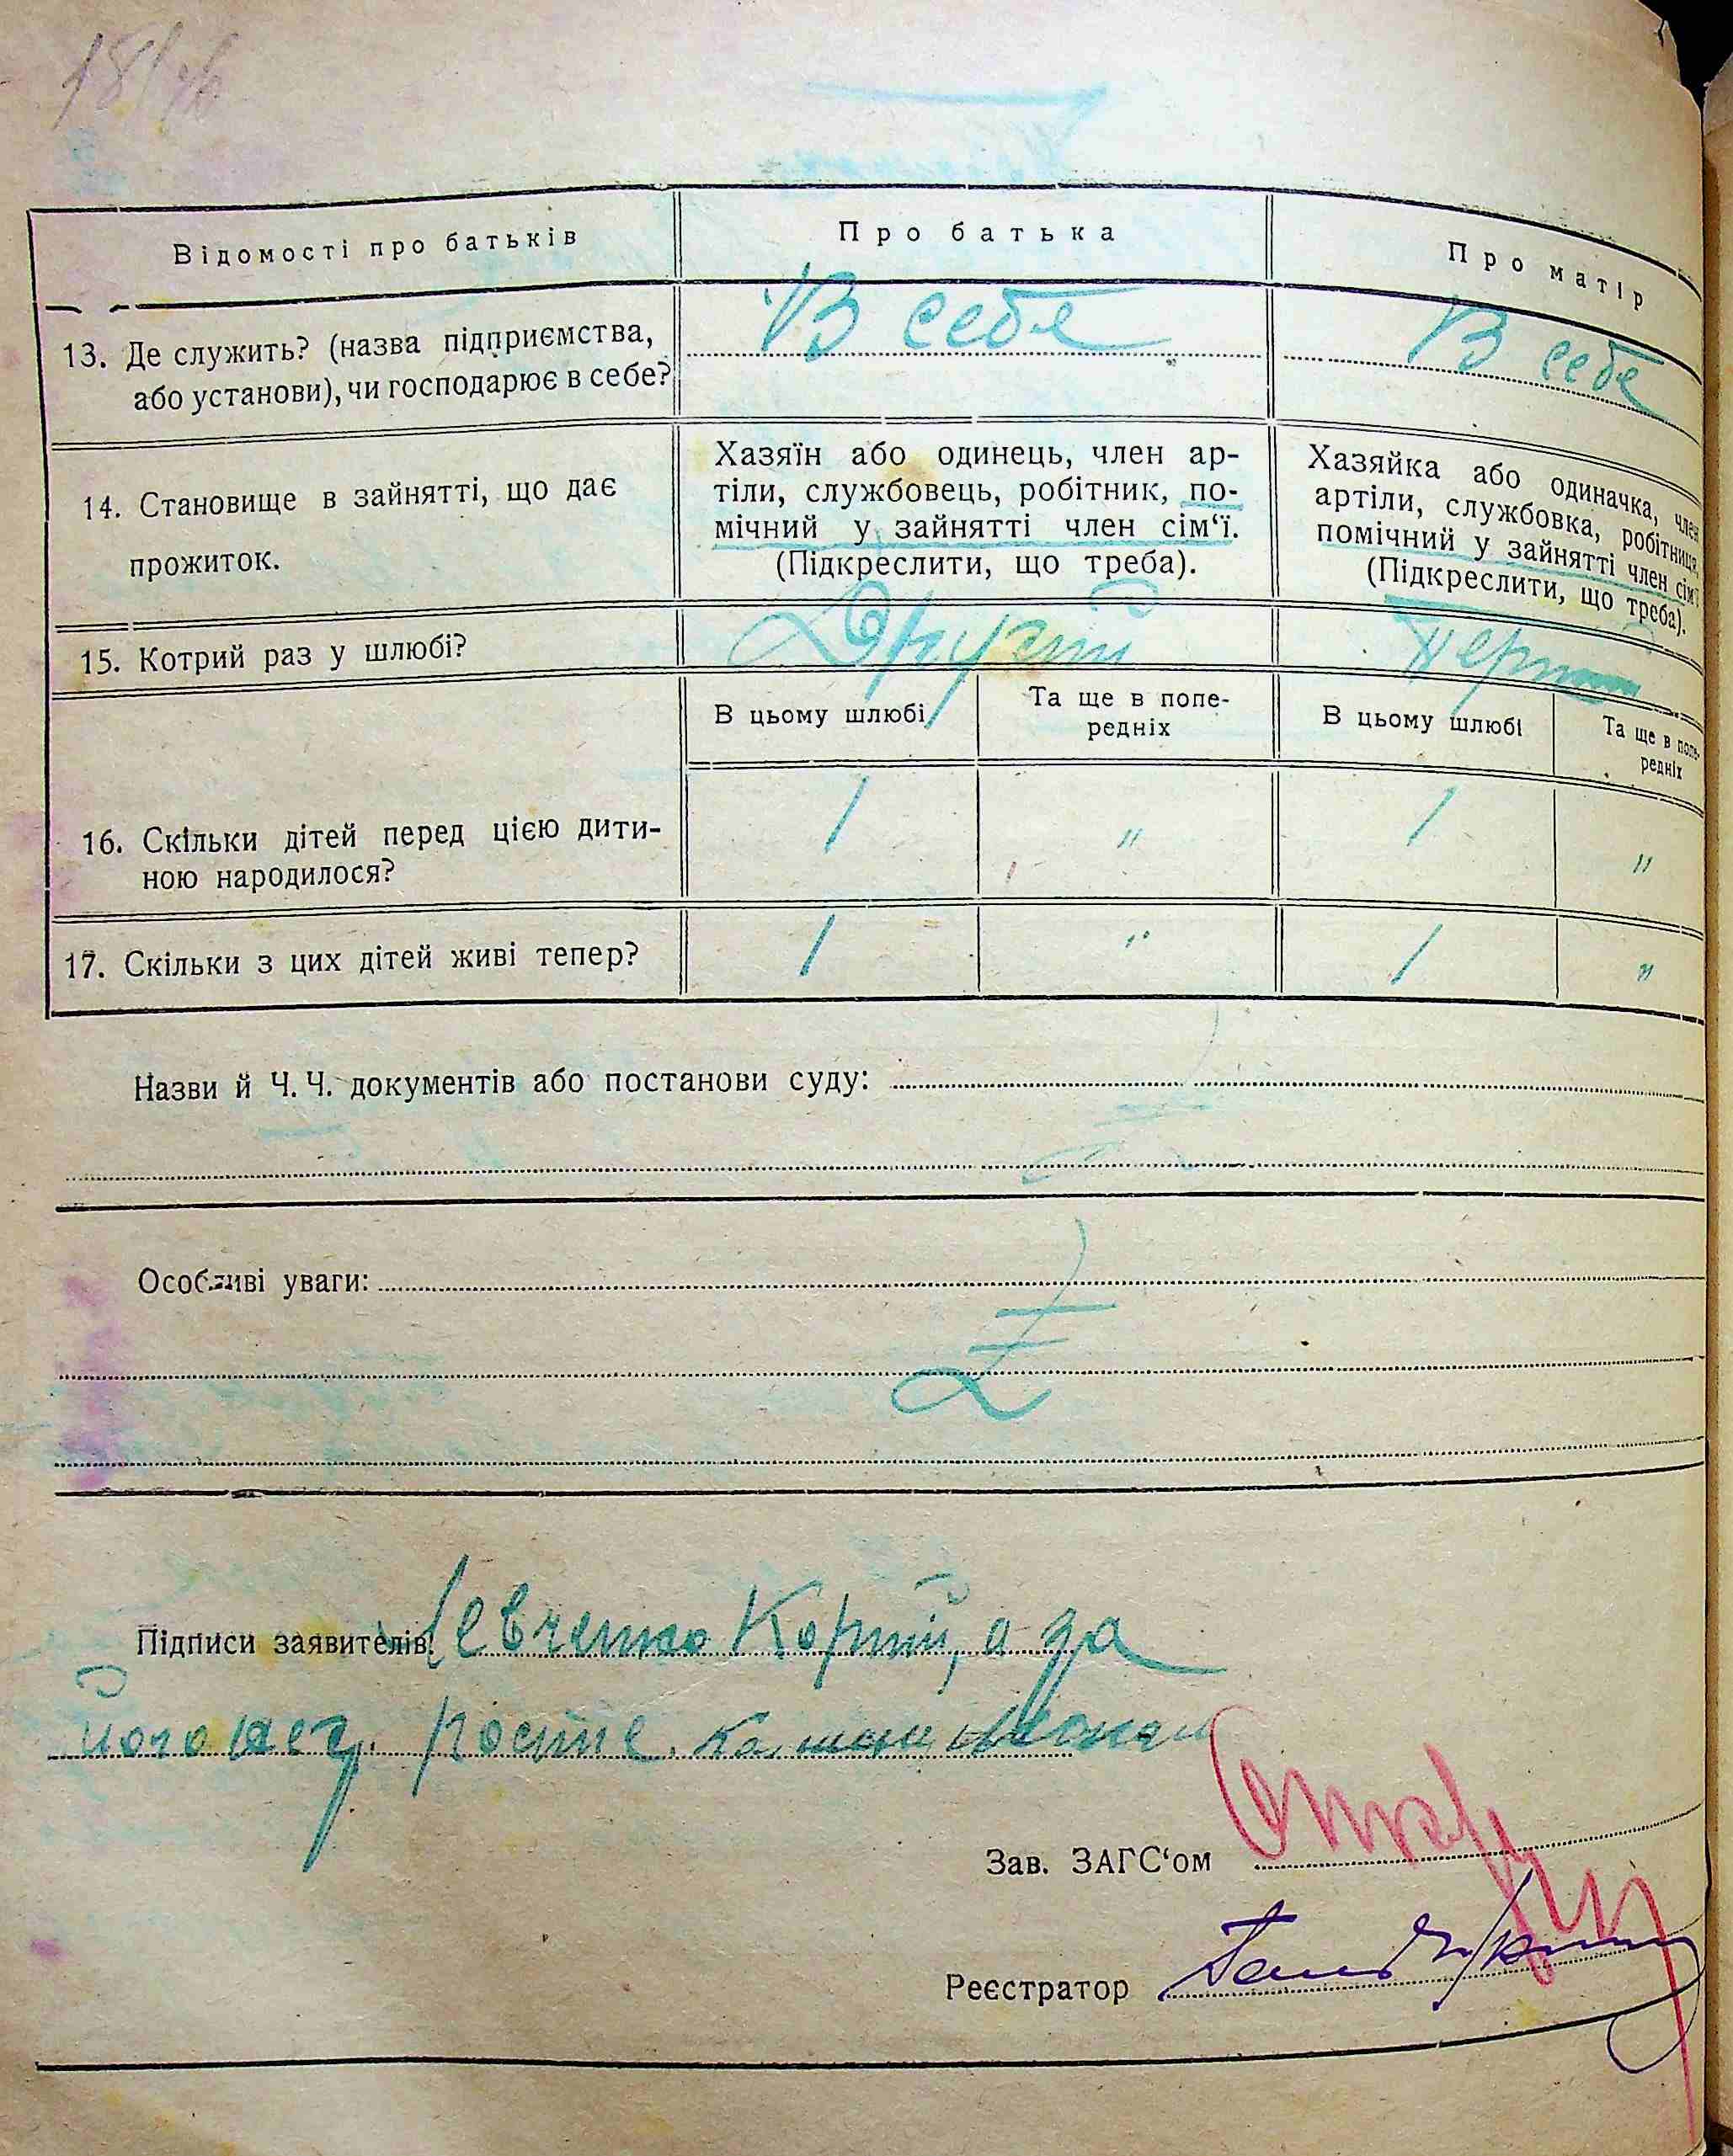 Відомості про батьків
Про батька
Про матір
13. Де служить? (назва підприємства,
або установи), чи господарює в себе?
В себе
В себе
14. Становище в зайнятті, що дає
прожиток.
Хазяїн або одинець, член ар-
тіли, службовець, робітник, по-
мічний у зайнятті член сім‘ї.
(Підкреслити, що треба).
Хазяйка або одиначка, член
артіли, службовка, робітниця,
помічний у зайнятті член сім‘ї
(Підкреслити, що треба).
15. Котрий раз у шлюбі?
Другий
В цьому шлюбі
Та ще в попе-
редніх
В цьому шлюбі
Та ще в попе-
редніх
16. Скільки дітей перед цією дити-
ною народилося?
1
"
1
"
17. Скільки з цих дітей живі тепер?
1
"
1
"
Назви й Ч. Ч. документів або постанови суду:
Особливі уваги:
Підписи заявителів: Левченко Корній, а за
його
Зав. ЗАГС‘ом
Реєстратор